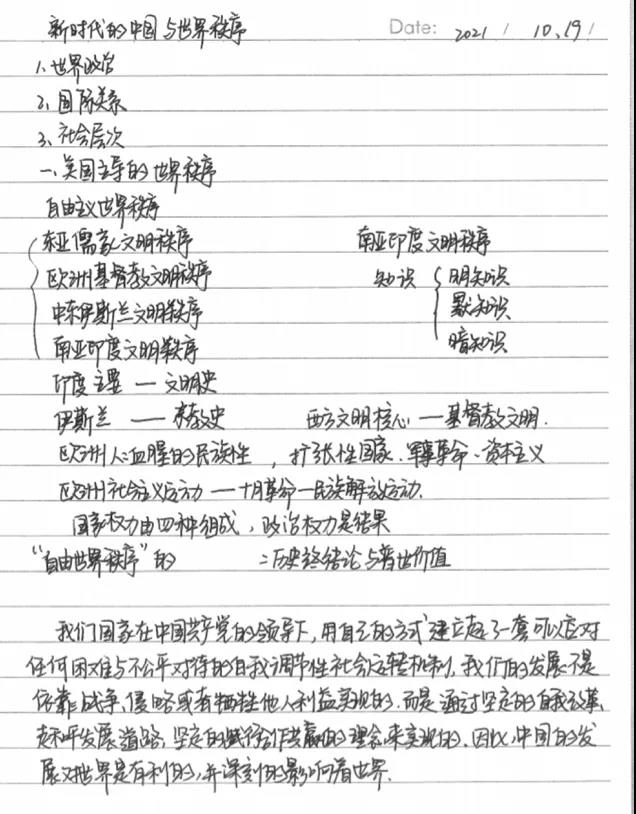 新时代的中国与世界秩序 Date: 2021 / 10.19 /
1、世界政治
2、国际关系
3、社会层次
一、美国主导的世界秩序
自由主义世界秩序
东亚儒家文明秩序 南亚印度文明秩序
欧洲基督教文明秩序 知识 明知识
中东伊斯兰文明秩序 默知识
南亚印度文明秩序 暗知识
印度主要 — 文明史
伊斯兰 — 宗教史 西方文明核心 — 基督教文明.
欧洲人:血腥的民族性，扩张性国家、军事革命、资本主义
欧洲社会主义运动 — 十月革命 — 民族解放运动.
国家权力由四种组成，政治权力是结果
“自由世界秩序”的 二历史终结论与普世价值
我们国家在中国共产党的领导下，用自己的方式建立起了一套可以应对
任何困难与不公平对待的自我调节性社会运转机制，我们的发展不是
依靠战争、侵略或者牺牲他人利益实现的，而是通过坚定的自我改革、
和平发展道路、坚定的践行合作共赢的理念来实现的。因此，中国的发
展对世界是有利的，并深刻的影响着世界.